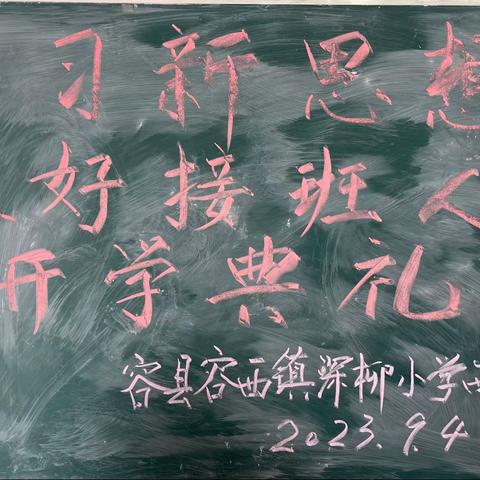 习新思想
好接班人
开学典礼
容县容西镇深柳小学
2023.9.4